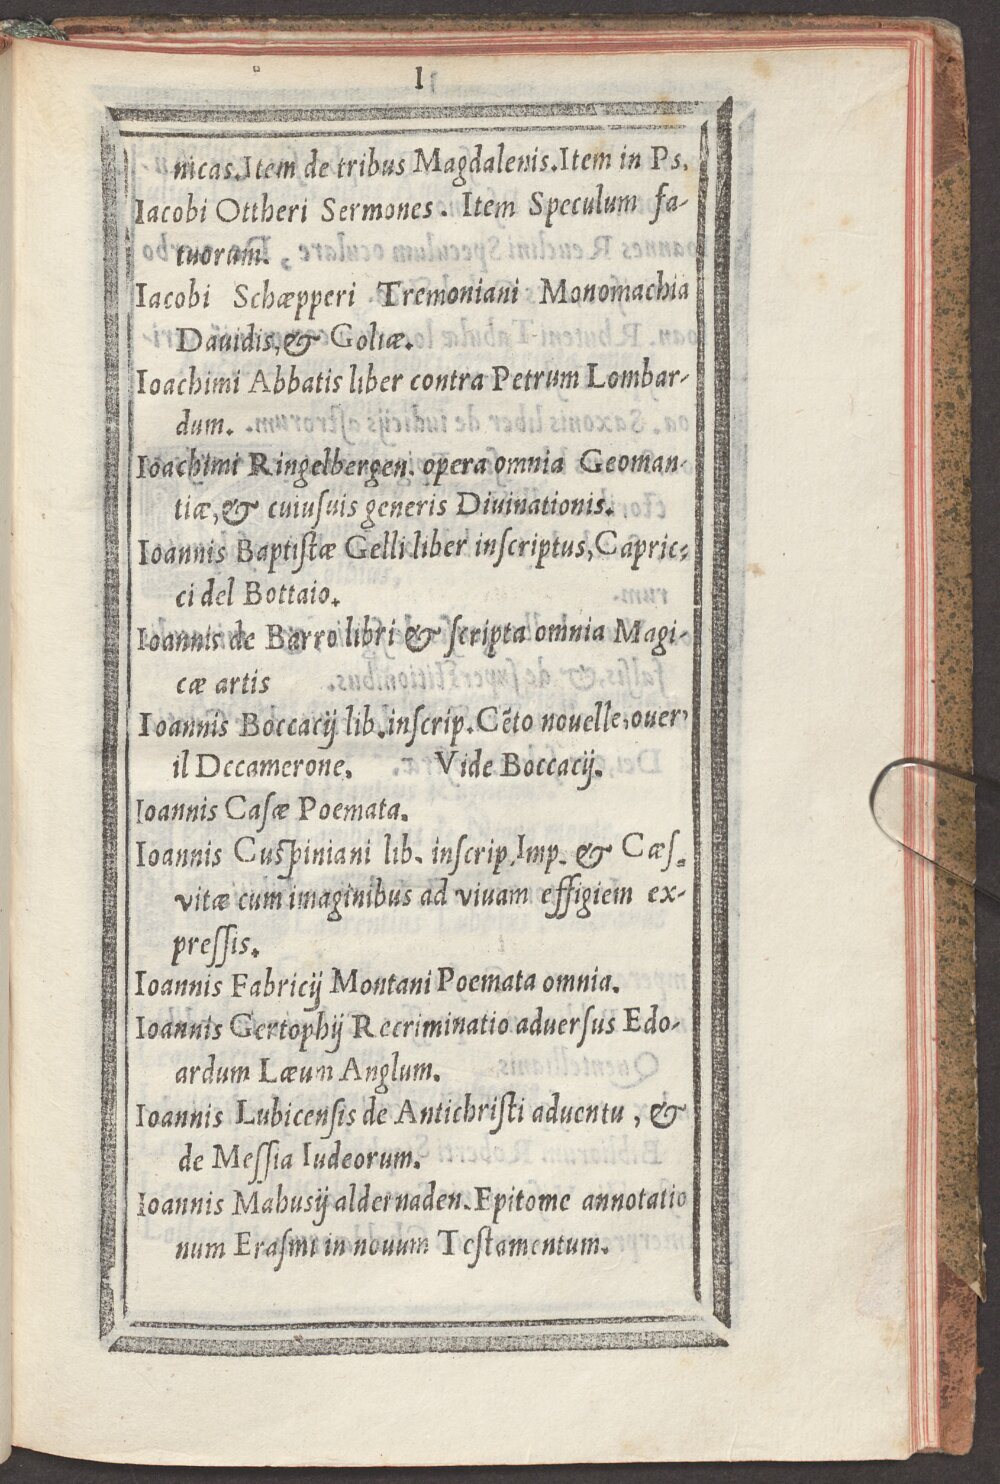 I
nicas.Item de tribus Magdalenis.Item in Ps.
Iacobi Ottheri Sermones. Item Speculum fa-
tuorum.
Iacobi Schæpperi Tremoniani Monomachia
Dauidis,& Goliæ.
Ioachimi Abbatis liber contra Petrum Lombar-
dum.
Ioachimi Ringelbergen. opera omnia Geoman-
tiæ,& cuiusuis generis Diuinationis.
Ioannis Baptistæ Gelli liber inscriptus,Capric-
ci del Bottaio.
Ioannis de Barro libri & scripta omnia Magi-
cæ artis
Ioannis Boccacij lib.inscrip.Cēto nouelle,ouer
il Dccamerone. Vide Boccacij.
Ioannis Casæ Poemata.
Ioannis Cuspiniani lib. inscrip.Imp. & Cæs.
vitæ cum imaginibus ad viuam effigiem ex-
pressis.
Ioannis Fabricij Montani Poemata omnia.
Ioannis Gertophij Recriminatio aduersus Edo-
ardum Læum Anglum.
Ioannis Lubicensis de Antichristi aduentu, &
de Messia Iudeorum.
Ioannis Mahusij aldernaden.Epitome annotatio
num Erasmi in nouum Testamentum.